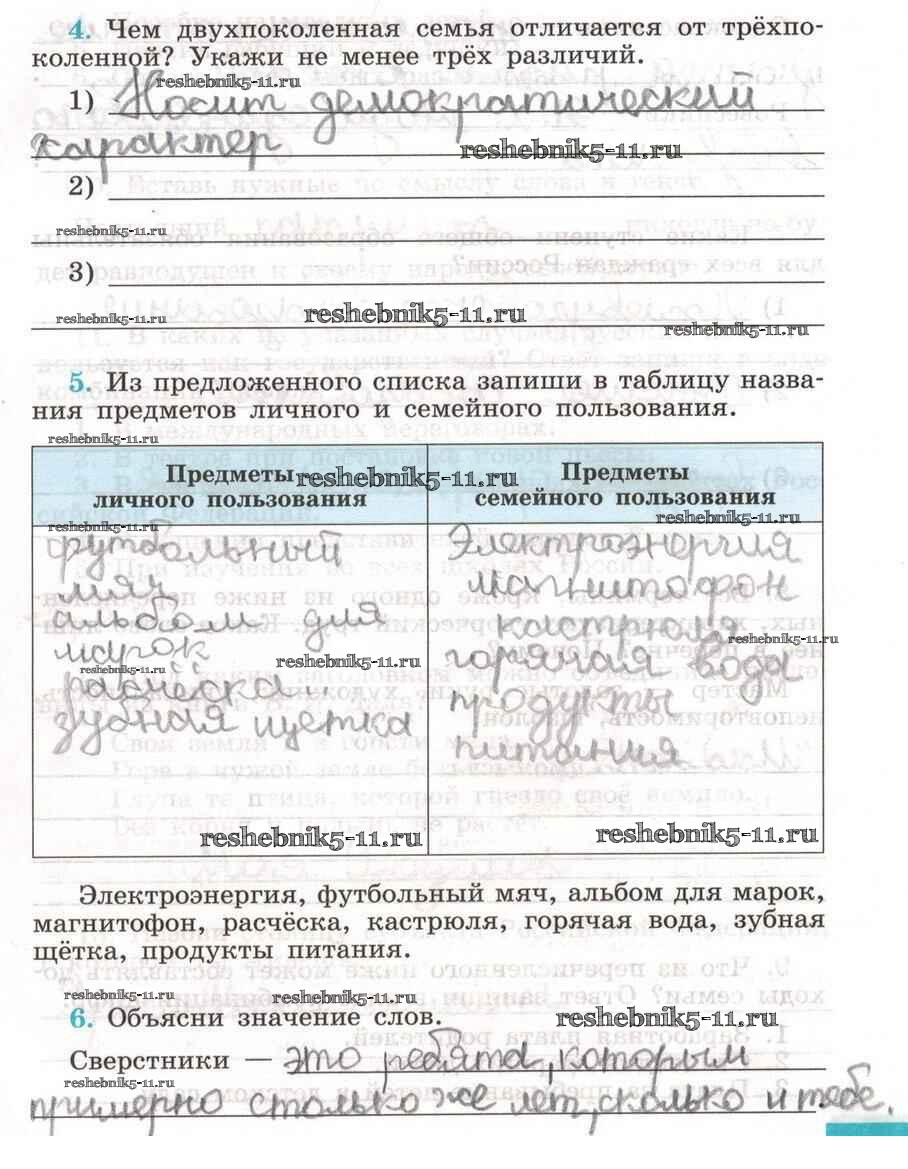 4. Чем двухпоколенная семья отличается от трёхпо-
коленной? Укажи не менее трёх различий.
reshebnik5-11.ru
1) Носит демократический
характер
reshebnik5-11.ru
2)
reshebnik5-11.ru
3)
reshebnik5-11.ru
reshebnik5-11.ru
reshebnik5-11.ru
5. Из предложенного списка запиши в таблицу назва-
ния предметов личного и семейного пользования.
reshebnik5-11.ru
Предметы
личного пользования
reshebnik5-11.ru
Предметы
семейного пользования
reshebnik5-11.ru
reshebnik5-11.ru
футбольный
мяч
альбом для
марок
reshebnik5-11.ru
reshebnik5-11.ru
расчёска
зубная щетка
reshebnik5-11.ru
Электроэнергия
магнитофон
кастрюля
reshebnik5-11.ru
горячая вода
продукты
питания
reshebnik5-11.ru
Электроэнергия, футбольный мяч, альбом для марок,
магнитофон, расчёска, кастрюля, горячая вода, зубная
щётка, продукты питания.
reshebnik5-11.ru
reshebnik5-11.ru
6. Объясни значение слов.
reshebnik5-11.ru
Сверстники — это ребята, которым
reshebnik5-11.ru
примерно столько же лет, сколько и тебе.